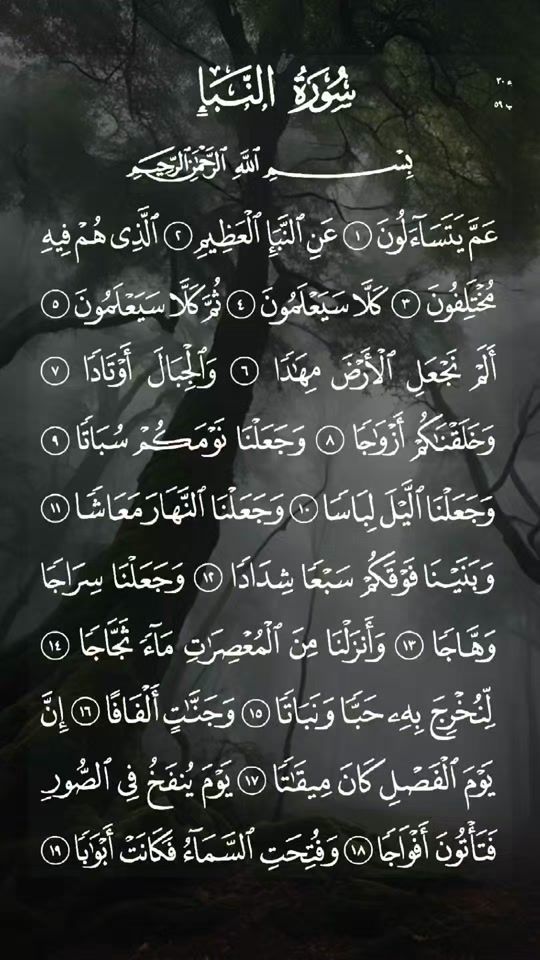 سُورَةُ النَّبَإِ
ج ٣٠
ب ٥٩
بِسْمِ اللَّهِ الرَّحْمَٰنِ الرَّحِيمِ
عَمَّ يَتَسَآءَلُونَ ١ عَنِ ٱلنَّبَإِ ٱلْعَظِيمِ ٢ ٱلَّذِى هُمْ فِيهِ
مُخْتَلِفُونَ ٣ كَلَّا سَيَعْلَمُونَ ٤ ثُمَّ كَلَّا سَيَعْلَمُونَ ٥
أَلَمْ نَجْعَلِ ٱلْأَرْضَ مِهَٰدًا ٦ وَٱلْجِبَالَ أَوْتَادًا ٧
وَخَلَقْنَٰكُمْ أَزْوَٰجًا ٨ وَجَعَلْنَا نَوْمَكُمْ سُبَاتًا ٩
وَجَعَلْنَا ٱلَّيْلَ لِبَاسًا ١٠ وَجَعَلْنَا ٱلنَّهَارَ مَعَاشًا ١١
وَبَنَيْنَا فَوْقَكُمْ سَبْعًا شِدَادًا ١٢ وَجَعَلْنَا سِرَاجًا
وَهَّاجًا ١٣ وَأَنزَلْنَا مِنَ ٱلْمُعْصِرَٰتِ مَآءً ثَجَّاجًا ١٤
لِّنُخْرِجَ بِهِۦ حَبًّا وَنَبَاتًا ١٥ وَجَنَّٰتٍ أَلْفَافًا ١٦ إِنَّ
يَوْمَ ٱلْفَصْلِ كَانَ مِيقَٰتًا ١٧ يَوْمَ يُنفَخُ فِى ٱلصُّورِ
فَتَأْتُونَ أَفْوَاجًا ١٨ وَفُتِحَتِ ٱلسَّمَآءُ فَكَانَتْ أَبْوَٰبًا ١٩